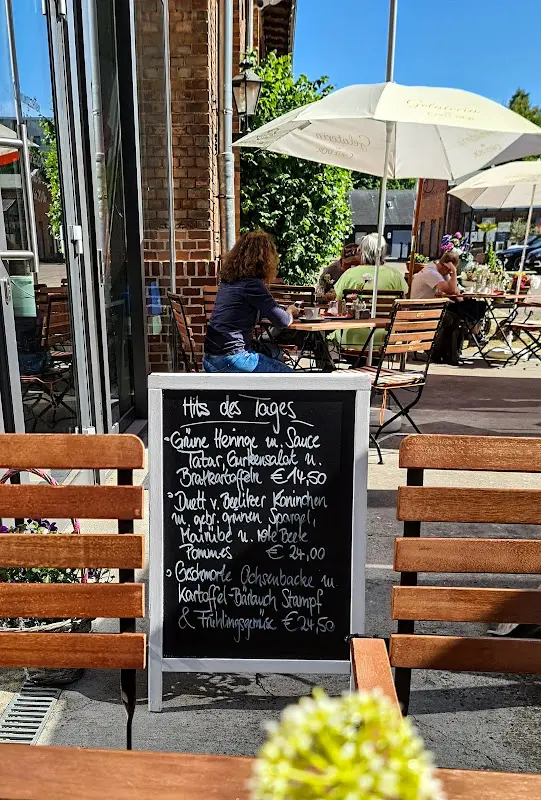 Gelateria
Hits des Tages
Grüne Heringe m. Sauce
Tatar, Gurkensalat u.
Bratkartoffeln €14,50
Duett v. Beelitzer Kaninchen
m. gebr. grünen Spargel,
Mairübe u. rote Beete
Pommes € 24,00
Geschmorte Ochsenbacke m.
Kartoffel-Bärlauch Stampf
& Frühlingsgemüse €24,50